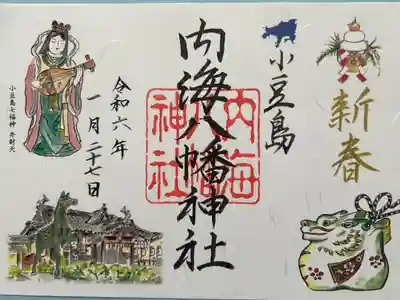 新春
小豆島
内海八幡神社
内海
神社
令和六年
一月二十七日
小豆島七福神 弁財天